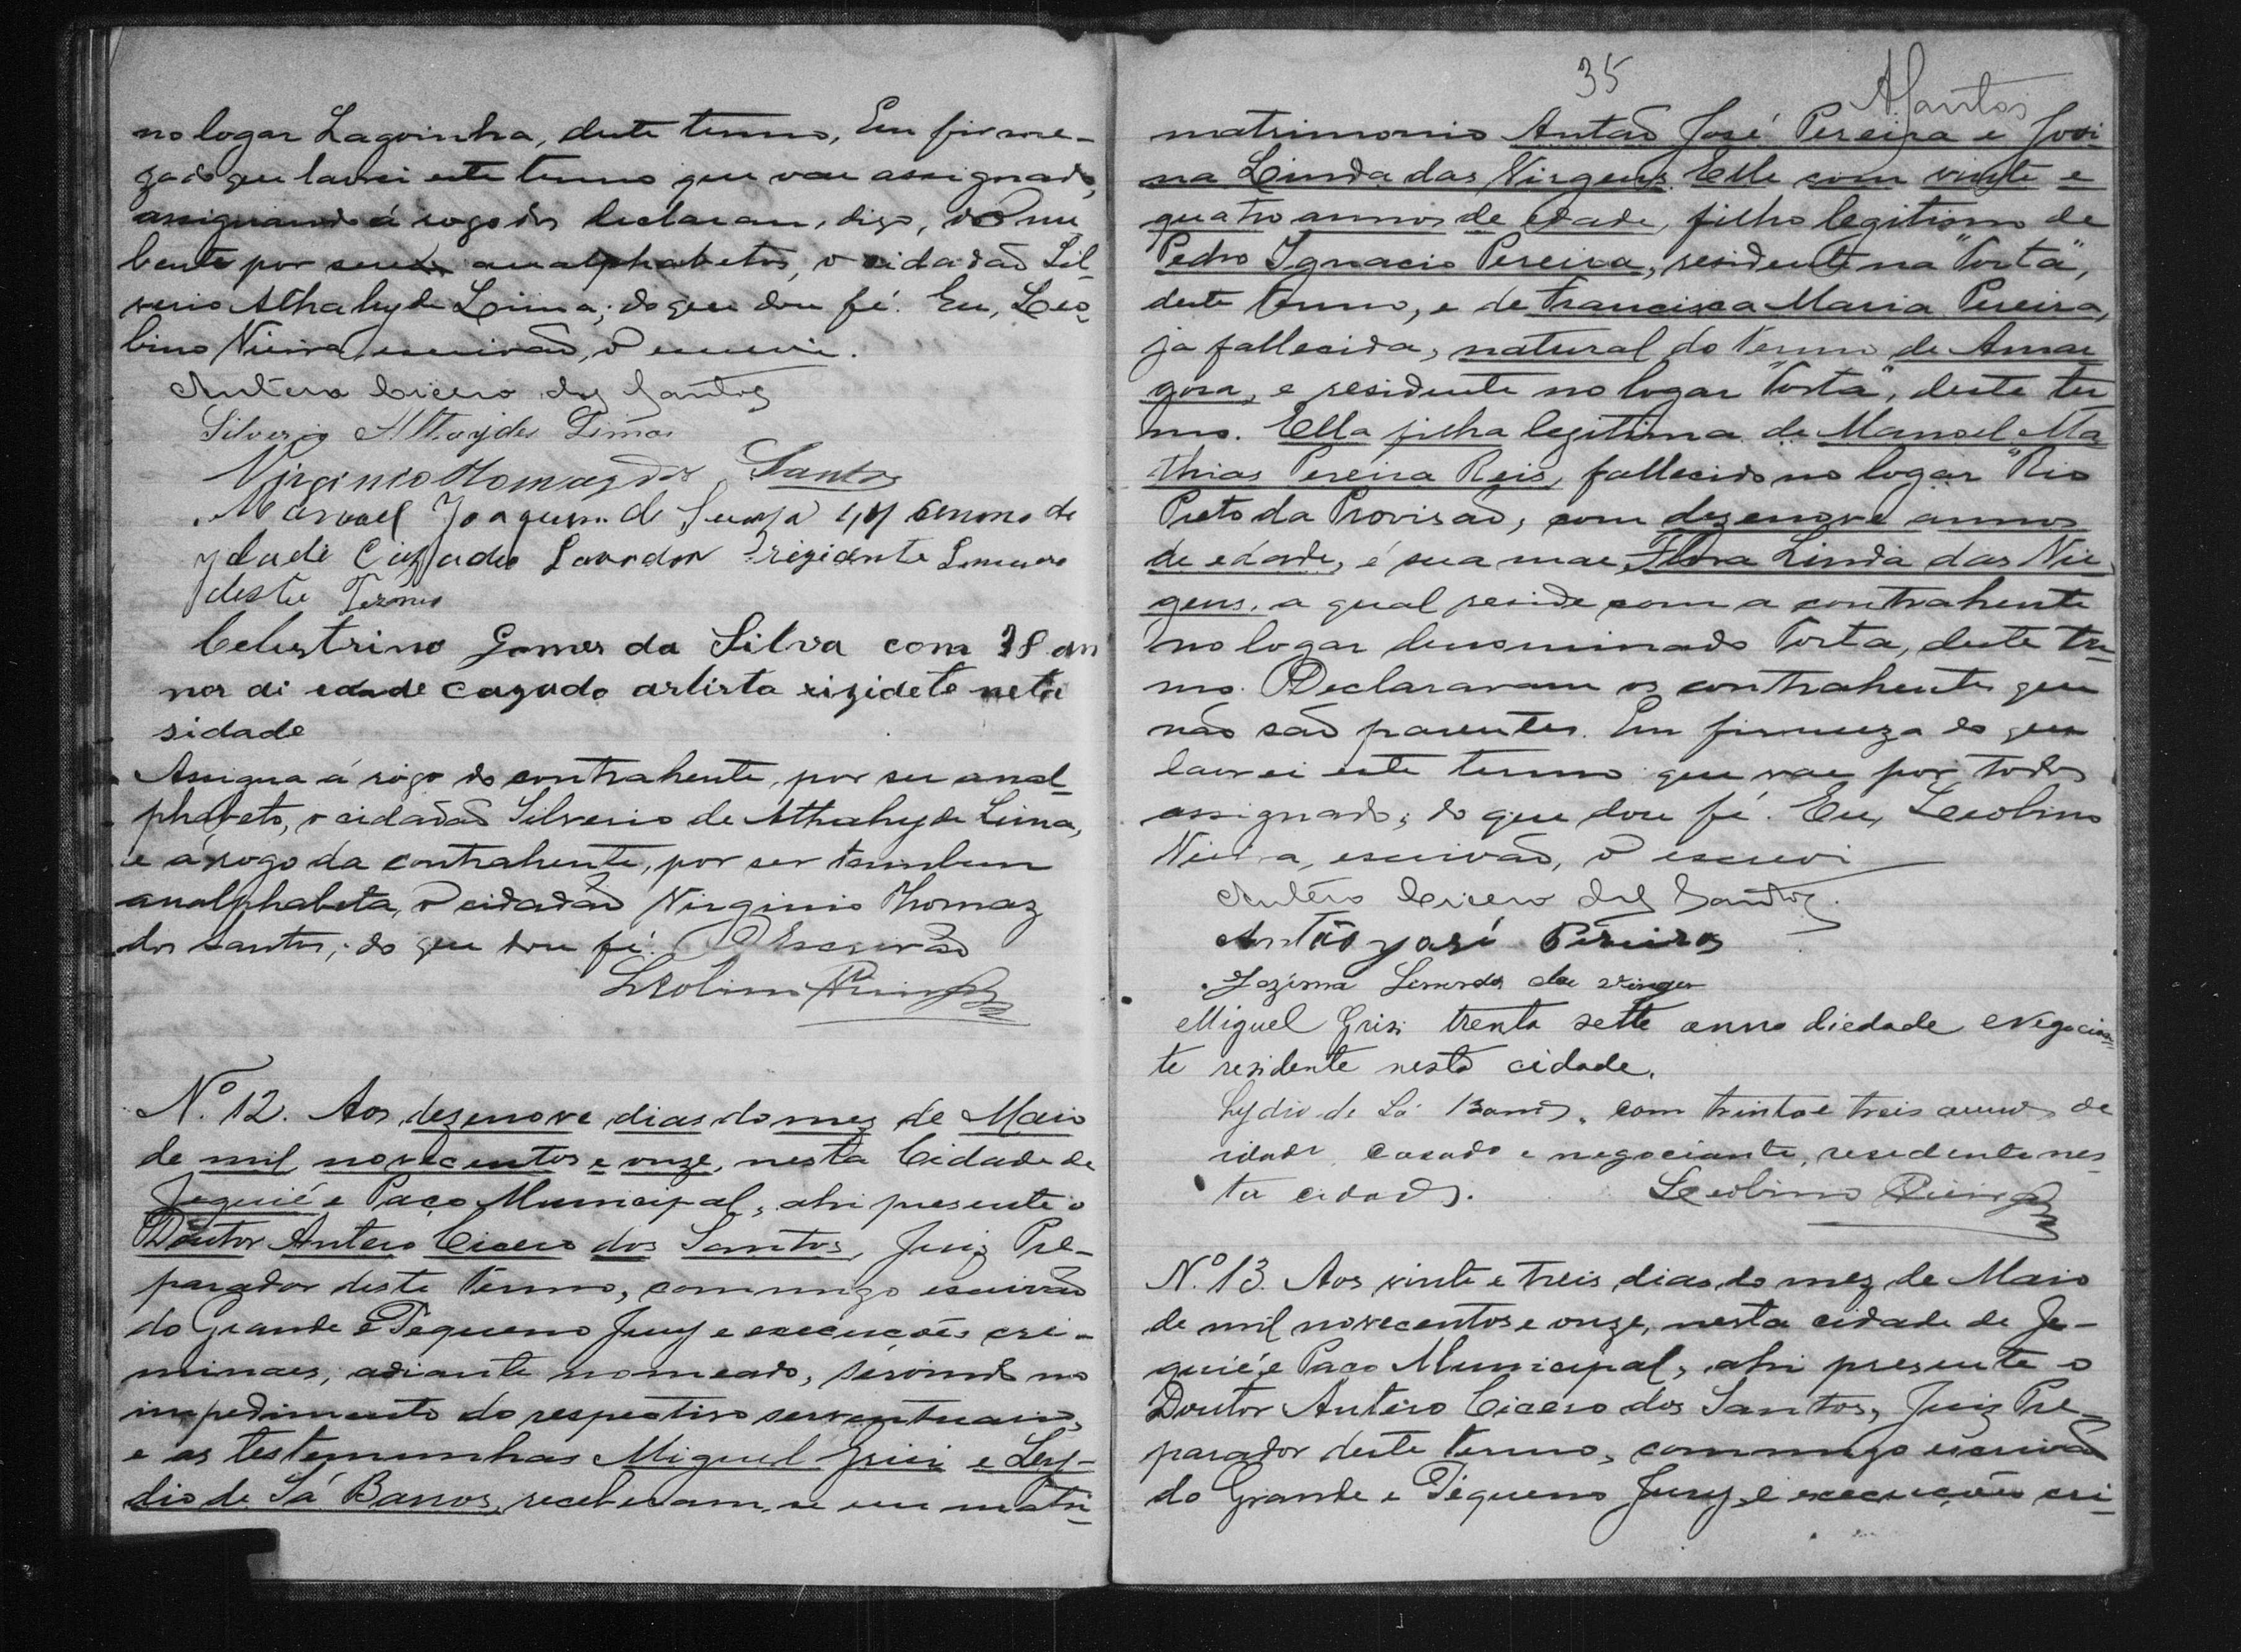 no logar Lagoinha, deste termo, Em firme-
za do que lavrei este termo que vae assignado,
assignando á rogo dos declaran, digo, dos nu
bente por serem analphabetos, o cidadão Sil-
verio Athahyde Lima; do que dou fé. Eu, Leo-
lino Vieira, escrivão, o escrevi.
Antero Cicero dos Santos
Silverio Athayde Lima
Virginio Thomaz dos Santos
Manoel Joaquim de Souza 44 annons de
ydade Cazado Lavrador Rezidente
deste Termo
Celestrino Gomes da Silva com 38 an
nos di edade cazado artista rizidete neta
sidade
Assigna á rogo do contrahente, por ser anal-
phabeto, o cidadão Silverio de Athahyde Lima,
e á rogo da contrahente, por ser tambem
analphabeta, o cidadão Virginio Thomaz
dos Santos; do que dou fé. O Escrivão
Leolino Vieira
Nº 12. Aos dezenove dias do mez de Maio
de mil novecentos e onze, nesta Cidade de
Jequié e Paço Municipal, ahi presente o
Doutor Antero Cicero dos Santos, Juiz Pre-
parador deste termo, commigo escrivão
do Grande e Pequeno Jury e execuções cri-
minaes, adiante nomeado, servindo no
impedimento do respectivo serventuario,
e as testemunhas Miguel Grisi e Ly-
dio de Sá Barros, receberam-se em matri-
35
ASantos
matrimonio Antão José Pereira e Jovi-
na Linda das Virgens. Elle com vinte e
quatro annos de edade, filho legitimo de
Pedro Ignacio Pereira, residente na "Torta",
deste termo, e de Francisca Maria Pereira,
ja fallecida, natural do termo de Amar
gosa, e residente no logar "Torta", deste ter
mo. Ella filha legitima de Manoel Ma
thias Pereira Reis, fallecido no logar "Rio
Preto da Provisão, com dezenove annos
de edade, é sua mae Flora Linda das Vir
gens, a qual reside com a contrahente
no logar denominado Torta, deste ter-
mo. Declararam os contrahentes que
não são parentes. Em firmeza do que
lavrei este termo que vae por todos
assignado; do que dou fé. Eu, Leolino
Vieira, escrivão, o escrevi
Antero Cicero dos Santos.
Antão José Pereira
Jozina Linda das Virges
Miguel Grisi trenta sette anno diedade Negocian-
te residente nesta cidade.
Lydio de Sá Barros, com trinta e treis annos de
idade, casado e negociante, residente nes-
ta cidade. Leolino Vieira
Nº 13. Aos vinte e treis dias do mez de Maio
de mil novecentos e onze, nesta cidade de Je-
quié e Paço Municipal, ahi presente o
Doutor Antero Cicero dos Santos, Juiz Pre-
parador deste termo, commigo escrivão
do Grande e Pequeno Jury e execuções cri-